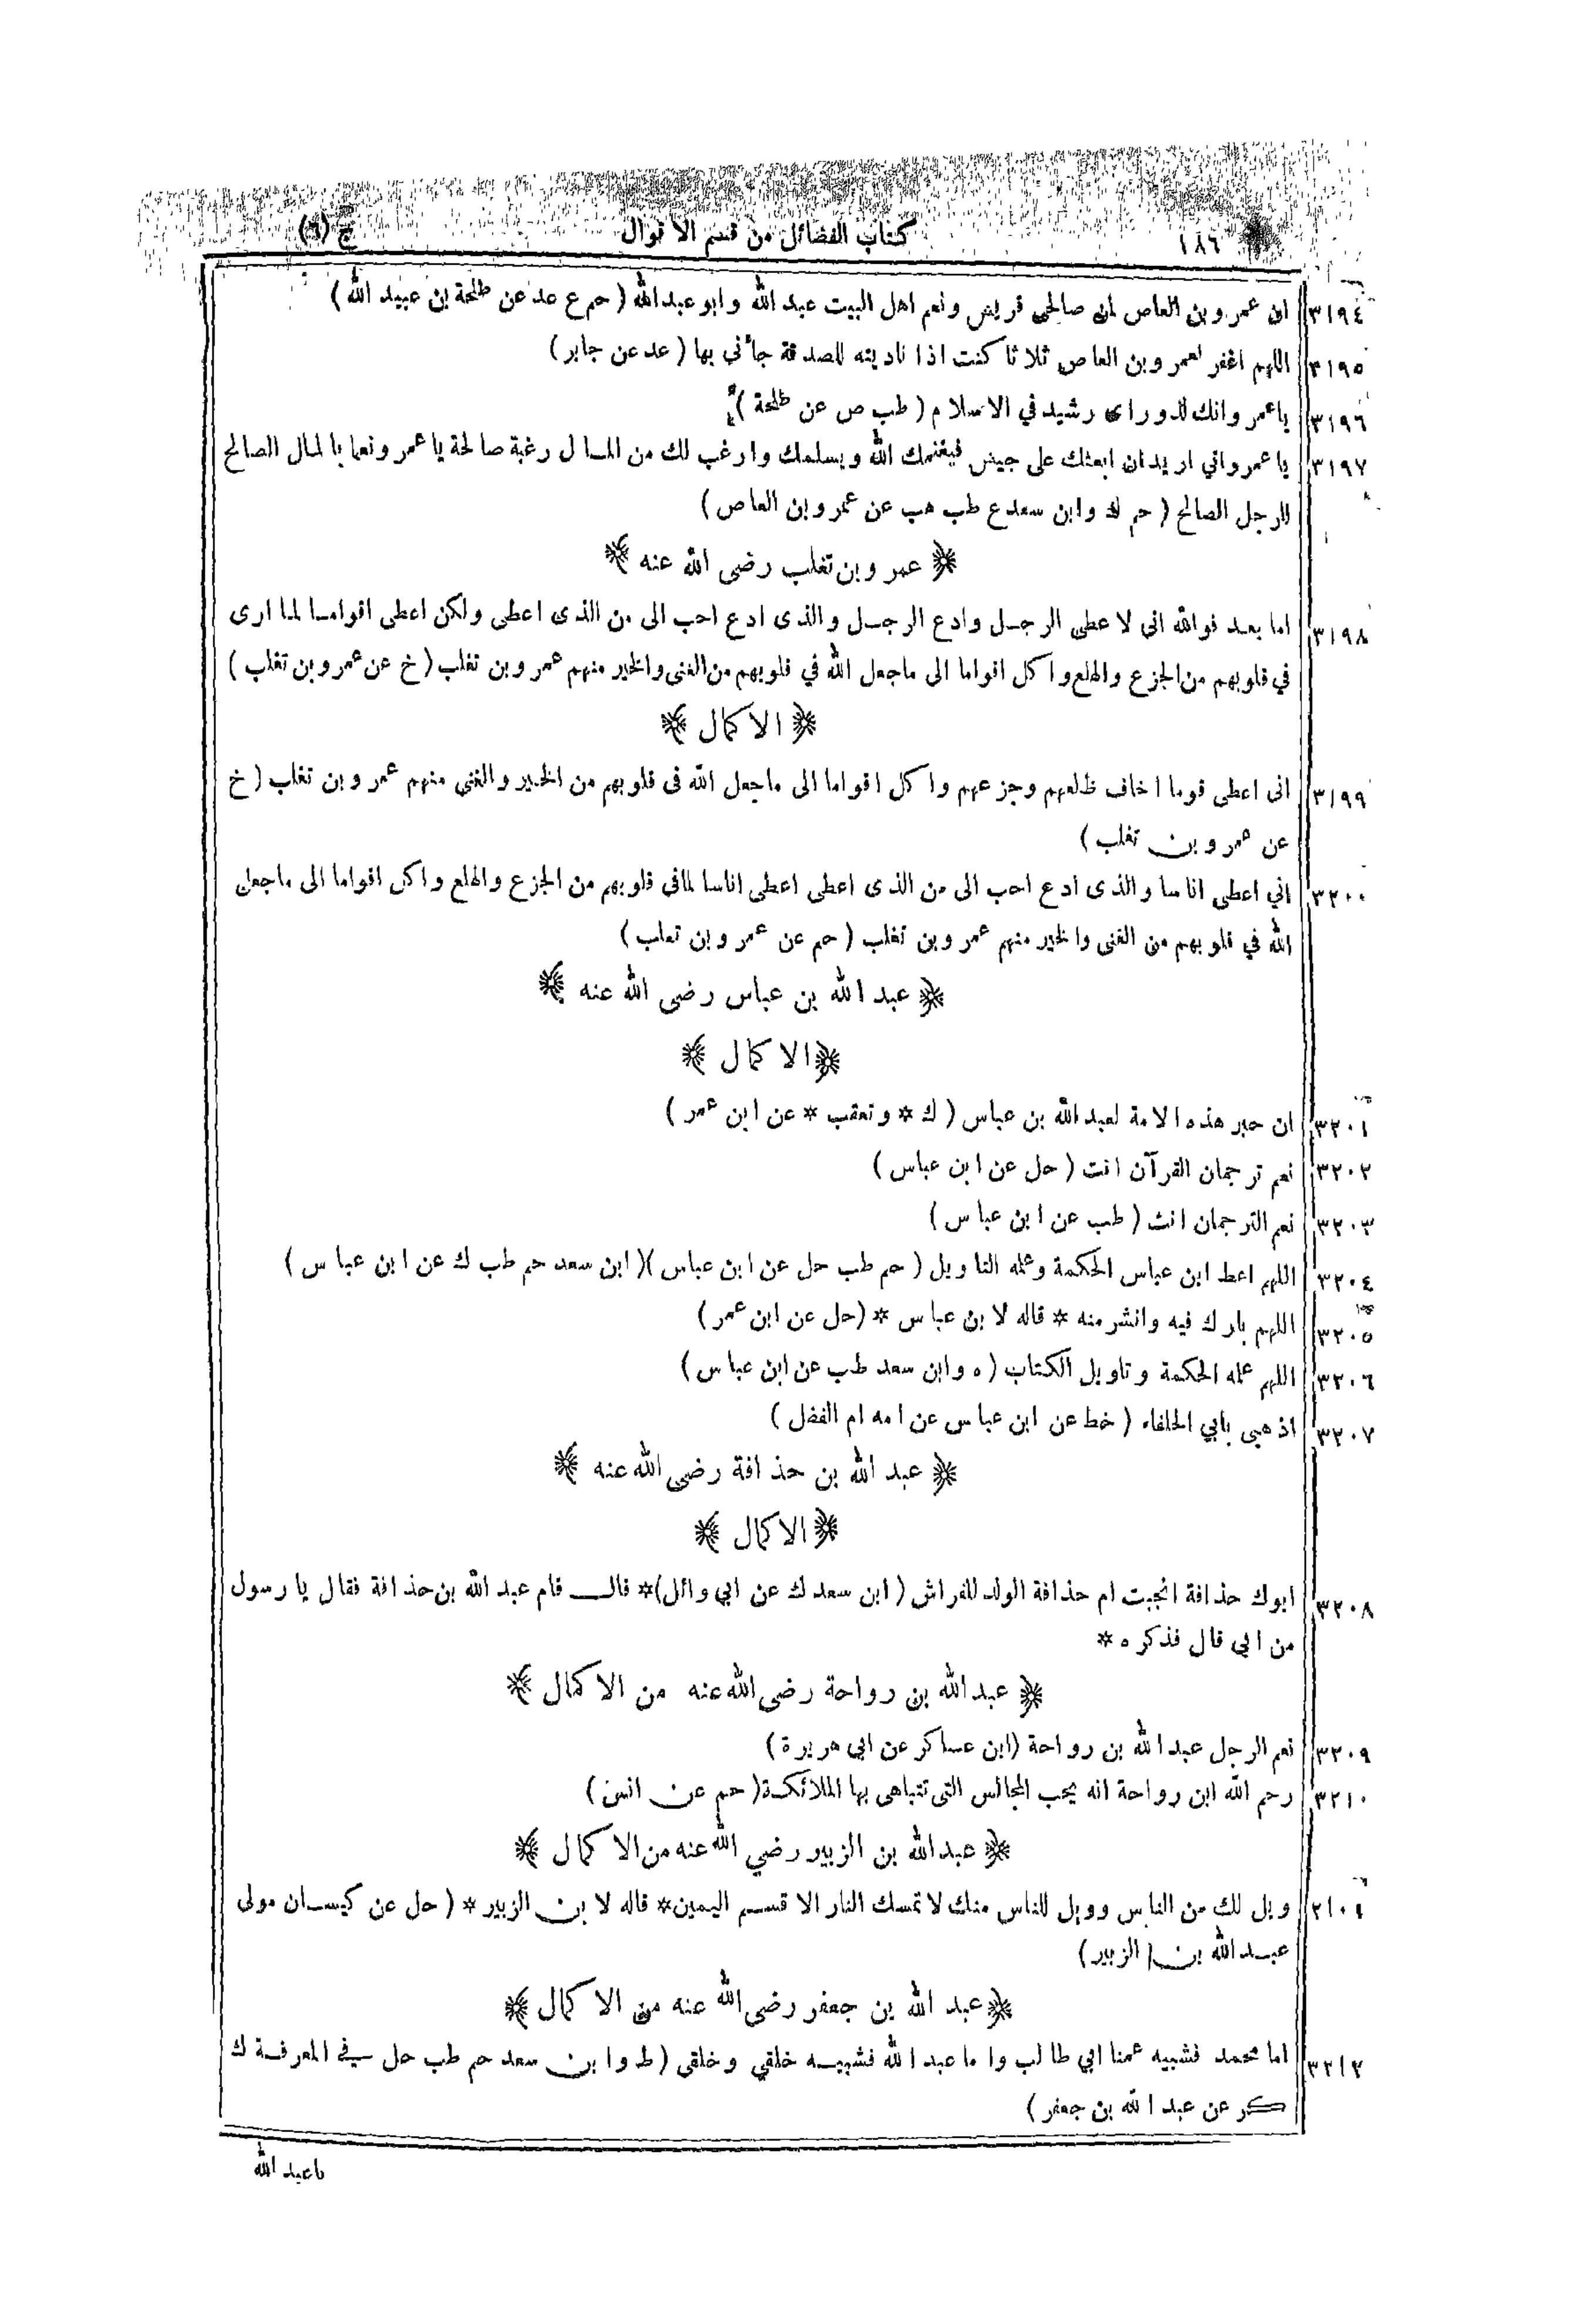 ١٨٦ كتاب الفضائل من قسم الاقوال ج (٦)
٣١٩٤ ان عمرو بن العاص لمن صالحى قريش ونعم اهل البيت عبد الله وابو عبدالله ( حم ع عد عن طلحة بن عبيد الله )
٣١٩٥ اللهم اغفر لعمرو بن العاص ثلاثا كنت اذا ناديته للصدقة جاءنى بها ( عد عن جابر )
٣١٩٦ ياعمرو انك لذو راى رشيد في الاسلام ( طب ص عن طلحة )
٣١٩٧ يا عمرو اني اريد ان ابعثك على جيش فيغنمك الله ويسلمك وارغب لك من المال رغبة صالحة يا عمرو نعما بالمال الصالح
للرجل الصالح ( حم ك وابن سعد ع طب هب عن عمرو بن العاص )
﴿ عمرو بن تغلب رضى الله عنه ﴾
٣١٩٨ اما بعد فوالله انى لاعطى الرجل وادع الرجل والذى ادع احب الى من الذى اعطى ولكن اعطى اقواما لما ارى
في قلوبهم من الجزع والهلع واكل اقواما الى ماجعل الله في قلوبهم من الغنى والخير منهم عمرو بن تغلب ( خ عن عمرو بن تغلب )
﴿ الاكمال ﴾
٣١٩٩ انى اعطى قوما اخاف ظلعهم وجزعهم واكل اقواما الى ماجعل الله فى قلوبهم من الخير والغنى منهم عمرو بن تغلب ( خ
عن عمرو بن تغلب )
٣٢٠٠ اني اعطى اناسا والذى ادع احب الى من الذى اعطى اعطى اناسا لمافى قلوبهم من الجزع والهلع واكل اقواما الى ماجعل
الله في قلوبهم من الغنى والخير منهم عمرو بن تغلب ( حم عن عمرو بن تعلب )
﴿ عبد الله بن عباس رضى الله عنه ﴾
﴿ الاكمال ﴾
٣٢٠١ ان حبر هذه الامة لعبد الله بن عباس ( ك * وتعقب * عن ابن عمر )
٣٢٠٢ نعم ترجمان القرآن انت ( حل عن ابن عباس )
٣٢٠٣ نعم الترجمان انت ( طب عن ابن عباس )
٣٢٠٤ اللهم اعط ابن عباس الحكمة وعلمه التاويل ( حم طب حل عن ابن عباس )( ابن سعد حم طب ك عن ابن عباس )
٣٢٠٥ اللهم بارك فيه وانشر منه * قاله لابن عباس * (حل عن ابن عمر )
٣٢٠٦ اللهم علمه الحكمة وتاويل الكتاب ( ه وابن سعد طب عن ابن عباس )
٣٢٠٧ اذهبى بابي الخلفاء ( خط عن ابن عباس عن امه ام الفضل )
﴿ عبد الله بن حذافة رضى الله عنه ﴾
﴿ الاكمال ﴾
٣٢٠٨ ابوك حذافة انجبت ام حذافة الولد للفراش ( ابن سعد ك عن ابي وائل )* قال قام عبد الله بن حذافة فقال يا رسول
من ابى قال فذكره *
﴿ عبدالله بن رواحة رضى الله عنه من الاكمال ﴾
٣٢٠٩ نعم الرجل عبد الله بن رواحة (ابن عساكر عن ابى هريرة )
٣٢١٠ رحم الله ابن رواحة انه يحب المجالس التى تتباهى بها الملائكة ( حم عن انس )
﴿ عبدالله بن الزبير رضي الله عنه من الاكمال ﴾
ويل لك من الناس وويل للناس منك لاتمسك النار الا قسم اليمين* قاله لابن الزبير * ( حل عن كيسان مولى
عبد الله بن الزبير)
﴿ عبد الله بن جعفر رضى الله عنه من الاكمال ﴾
٣٢١٢ اما محمد فشبيه عمنا ابي طالب واما عبد الله فشبيه خلقي وخلقى ( ط وابن سعد حم طب حل في المعرفة ك
كر عن عبد الله بن جعفر )
ياعبد الله